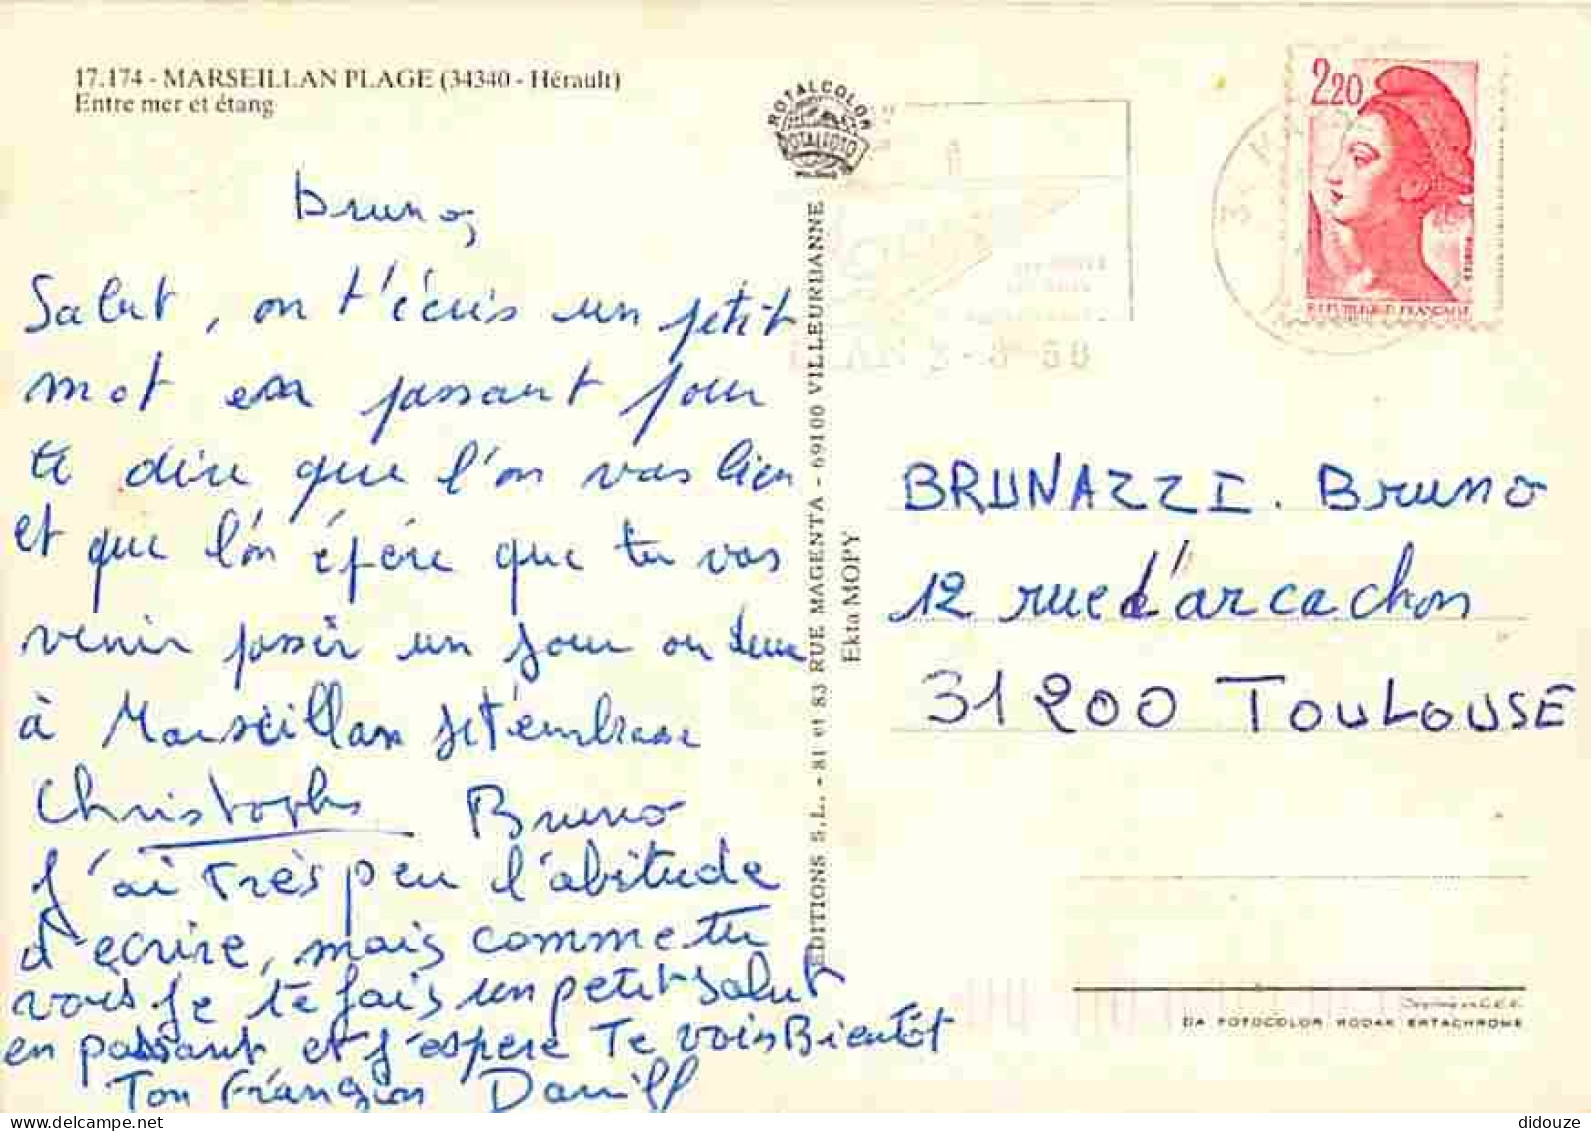 17.174 - MARSEILLAN PLAGE (34340 - Hérault)
Entre mer et étang
ROTALCOLOR
ROTALFOTO
2.20
REPUBLIQUE FRANÇAISE
Bruno,
Salut, on t'écris un petit
mot en passant pour
te dire que l'on vas bien
et que l'on éspére que tu vas
venir passer un jour ou deux
à Marseillan je t'embrasse
Christophe
Bruno
J'ai très peu l'abitude
d'ecrire, mais comme tu
vois je te fais un petit salut
en passant et j'espere Te voir Bientôt
Ton Frangin
EDITIONS S.L. - 81 et 83 RUE MAGENTA - 69100 VILLEURBANNE
Ekta MOPY
BRUNAZZI. Bruno
12 rue d'arcachon
31200 TOULOUSE
DA FOTOCOLOR KODAK EKTACHROME
www.delcampe.net
didouze